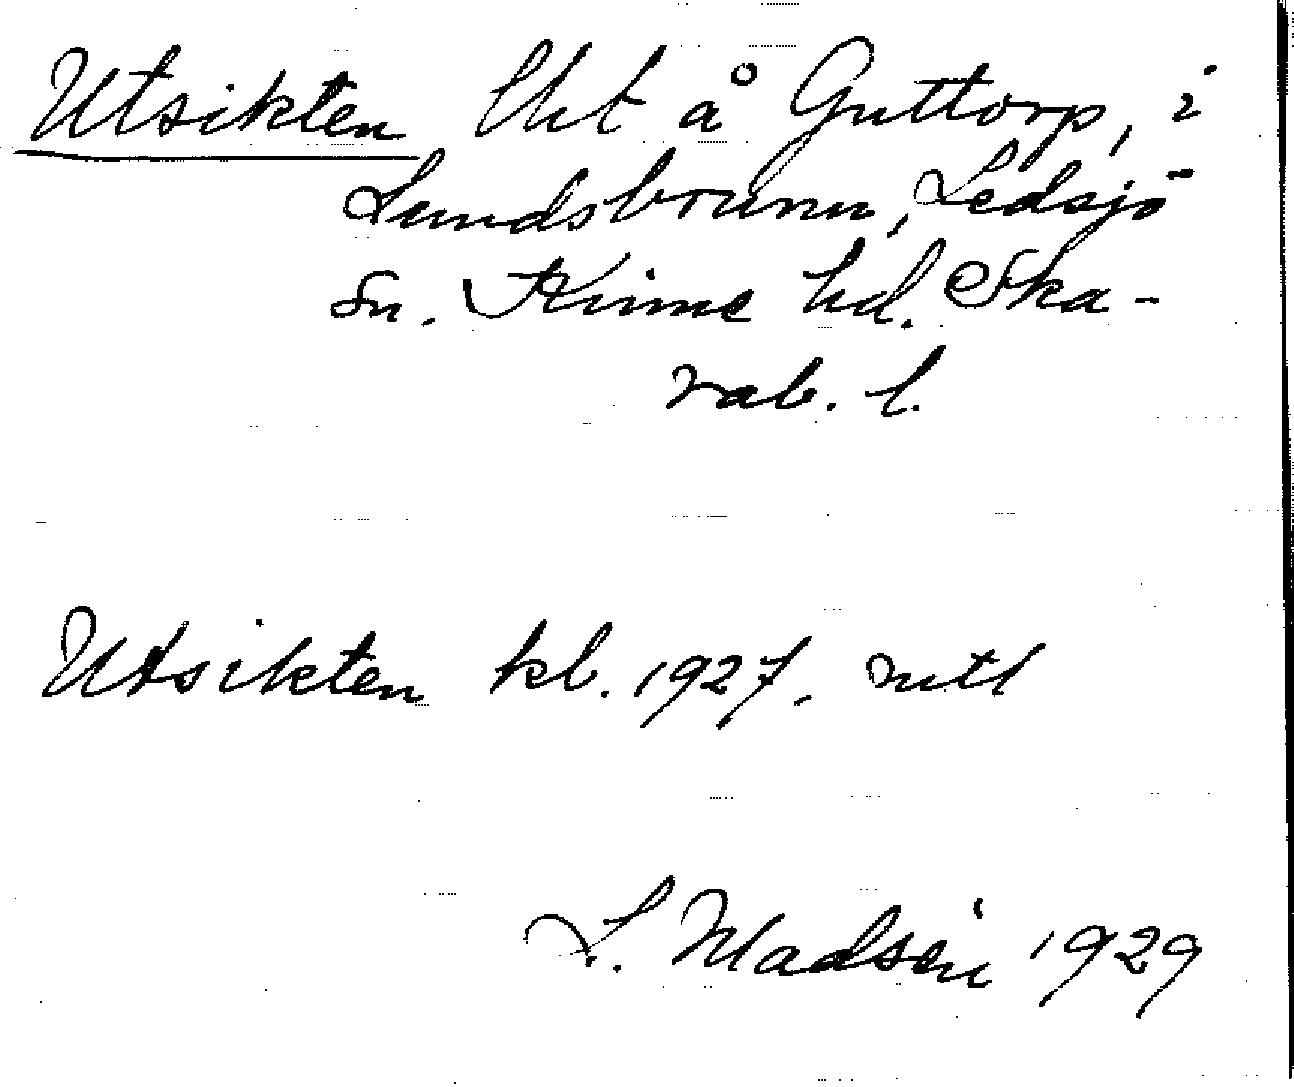 Utsikten lht å Guttorp, i
Lundsbrunn, Ledsjö
sn. Kinne hd. Ska-
rab. l.
Utsikten kl. 1927.
L. Madsén 1929